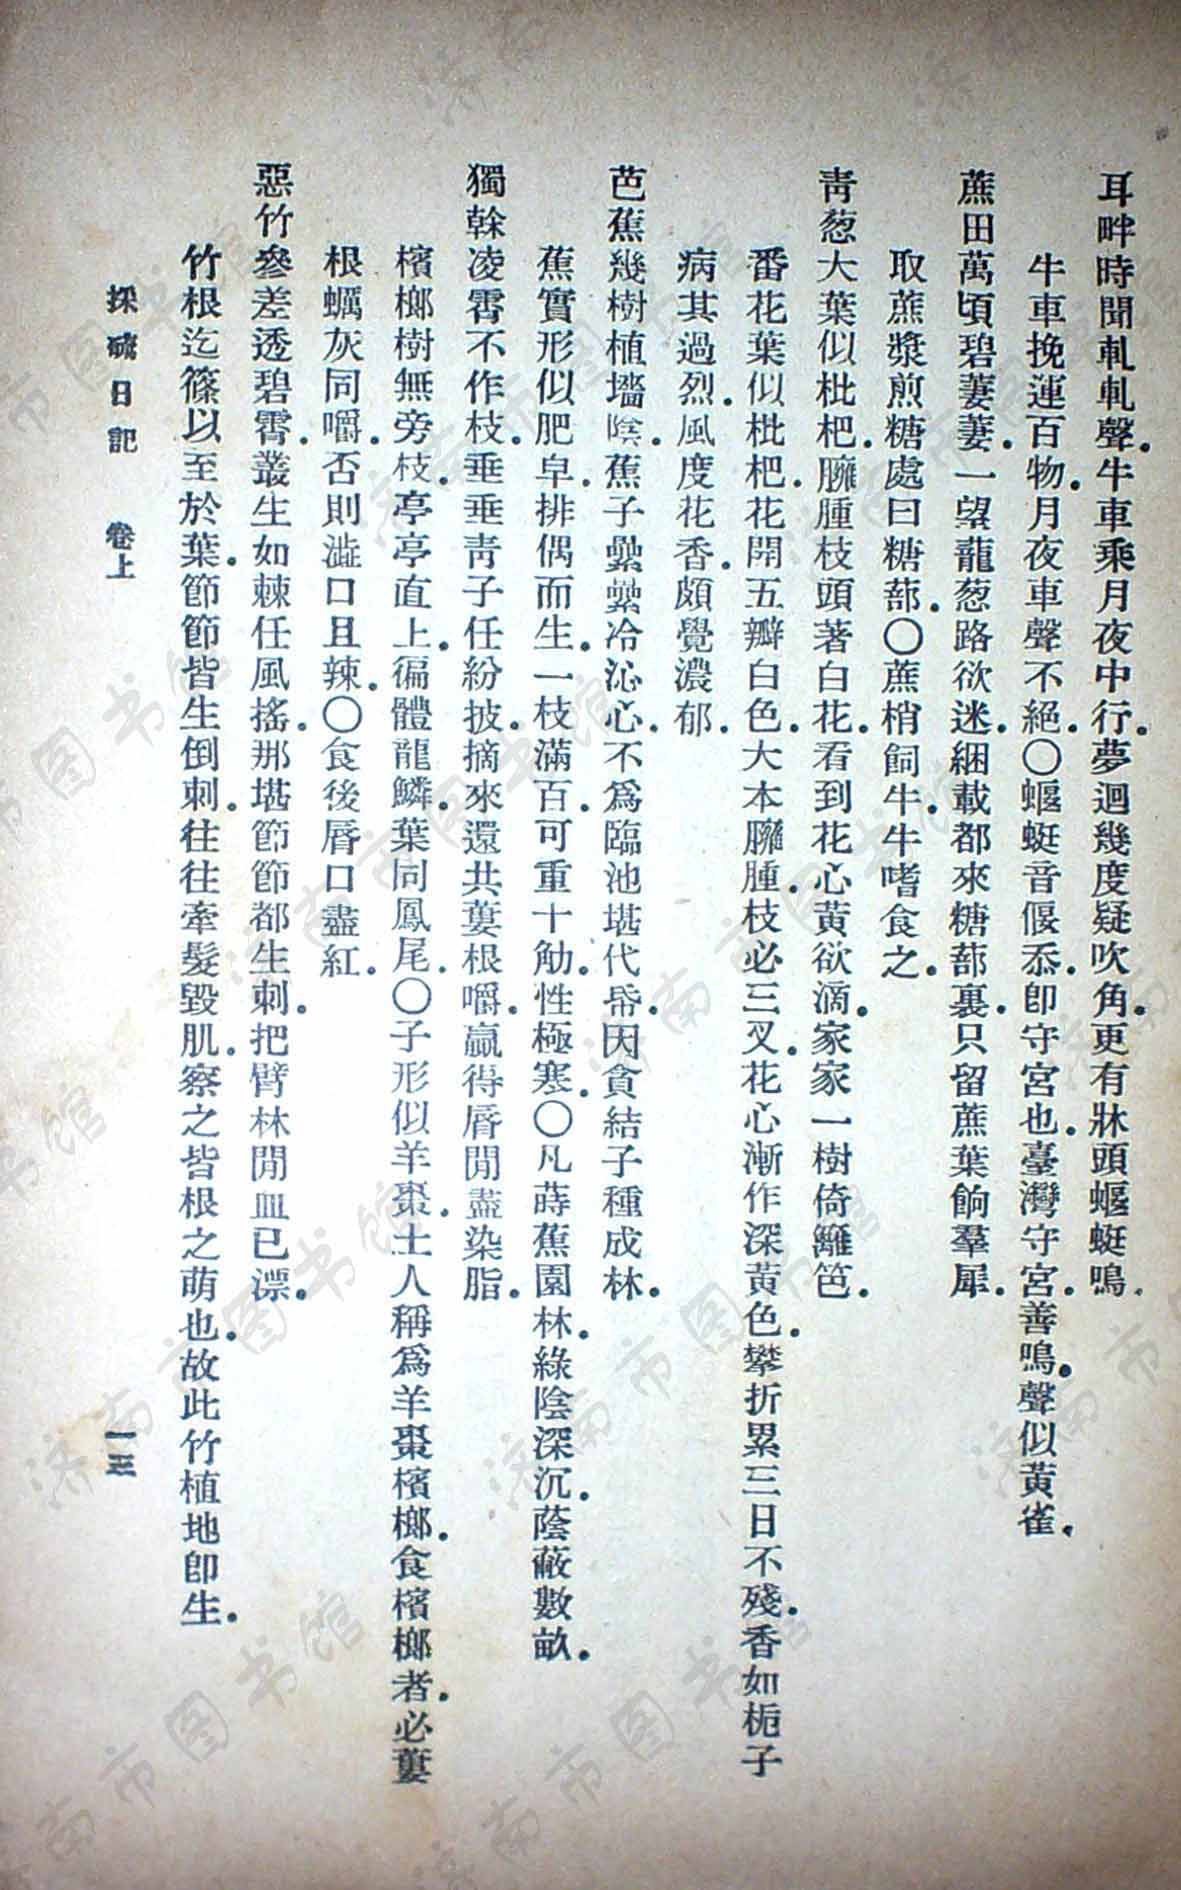 耳畔時聞軋軋聲。牛車乘月夜中行。夢迴幾度疑吹角。更有牀頭蝘蜓鳴。
牛車挽運百物。月夜車聲不絕。〇蝘蜓音偃忝。卽守宮也。臺灣守宮。善鳴。聲似黃雀。
蔗田萬頃碧萋萋。一望蘢葱路欲迷。綑載都來糖蔀裏。只留蔗葉餉羣犀。
取蔗漿煎糖處曰糖蔀。〇蔗梢飼牛。牛嗜食之。
靑葱大葉似枇杷。臃腫枝頭著白花。看到花心黃欲滴。家家一樹倚籬笆。
番花葉似枇杷。花開五瓣白色。大本臃腫。枝必三叉。花心漸作深黃色。攀折累三日不殘。香如梔子
病其過烈。風度花香。頗覺濃郁。
芭蕉幾樹植墻陰。蕉子纍纍冷沁心。不爲臨池堪代帋。因貪結子種成林。
蕉實形似肥皁。排偶而生。一枝滿百。可重十觔。性極寒。〇凡蒔蕉園林。綠陰深沉。蔭蔽數畝。
獨榦凌霄不作枝。垂垂靑子任紛披。摘來還共蔞根嚼。贏得脣閒盡染脂。
檳榔樹無旁枝。亭亭直上。徧體龍鱗。葉同鳳尾。〇子形似羊棗。土人稱爲羊棗檳榔。食檳榔者。必蔞
根蠣灰同嚼。否則澁口且辣。〇食後脣口盡紅。
惡竹參差透碧霄。叢生如棘任風搖。那堪節節都生刺。把臂林閒血已漂。
竹根迄篠以至於葉。節節皆生倒刺。往往牽髮毀肌。察之皆根之萌也。故此竹植地卽生。
採硫日記　卷上　一三
济南市图书馆